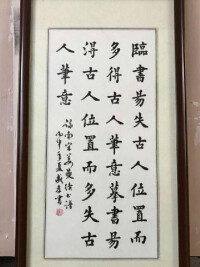 臨書易失古人位置而
多得古人筆意摹書易
得古人位置而多失古
人筆意
録南宋姜夔續書譜
丙申年夏
書